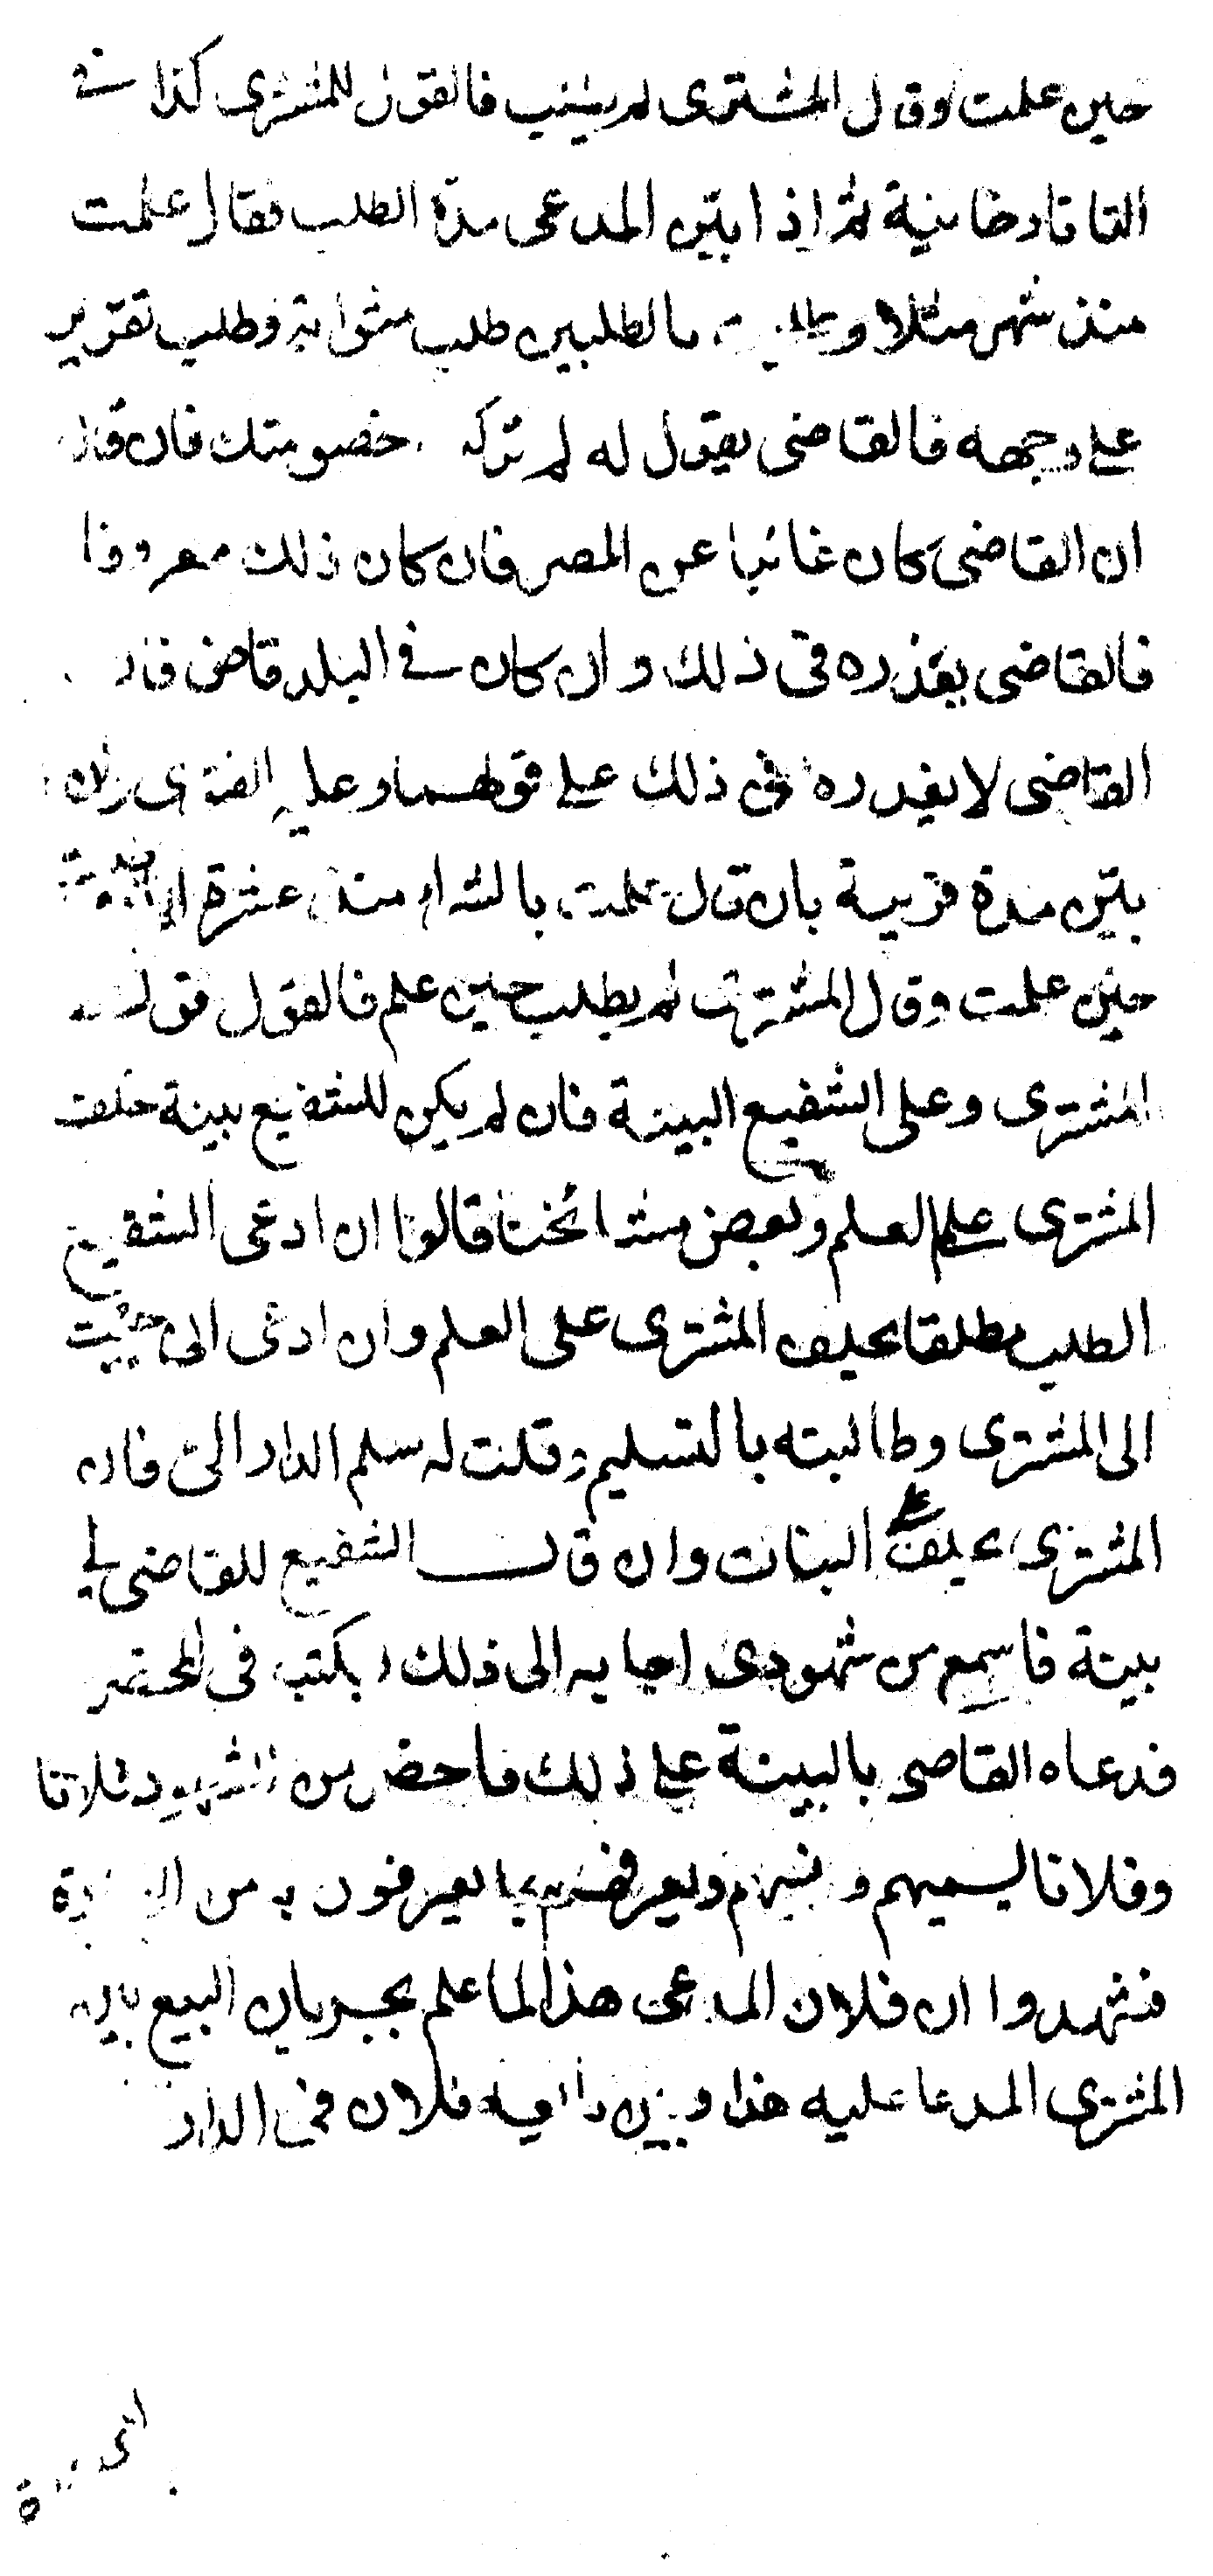 حين علمت وقال المشترى لم يثبت فالقول للمشترى كذا فى
التاتارخانية ثم اذا بين المدعى مدة الطلب فقال علمت
منذ شهر مثلا و بالطلبين طلب مواثبة وطلب تقرير
على وجهه فالقاضى يقول له لم تركه خصومتك فان قال
ان القاضى كان غائبا عن المصر فان كان ذلك معروفا
فالقاضى يعذره فى ذلك وان كان فى البلد قاض فان
القاضى لا يعذره فى ذلك على قولهما وعليه الفتوى وان
بين مدة قريبة بان قال علمت بالشراء منذ عشرة ايام
حين علمت وقال المشترى لم يطلب حين علم فالقول قول
المشترى وعلى الشفيع البينة فان لم يكن للشفيع بينة حلف
المشترى على العلم وبعض مشائخنا قالوا ان ادعى الشفيع
الطلب مطلقا يحلف المشترى على العلم وان ادعى انى جئت
الى المشترى وطالبته بالتسليم وقلت له سلم الدار الى فان
المشترى يحلف على البتات وان قال الشفيع للقاضى لى
بينة فاسمع من شهودى اجابه الى ذلك ويكتب فى المحضر
فدعاه القاضى بالبينة على ذلك فاحضر من الشهود فلانا
وفلانا ليسميهم وينسبهم ويعرفهم بما يعرفون به من
فشهدوا ان فلان المدعى هذا لما علم بجريان البيع بين
المشترى المدعا عليه هذا وبين فلان فى الدار